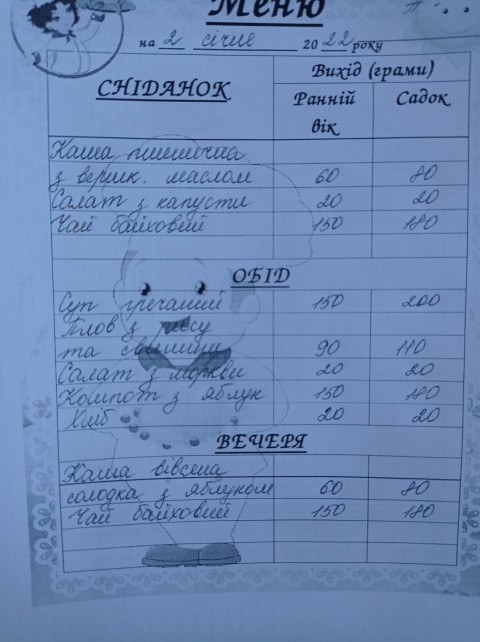 Меню
на 2 січня 2022 року
СНІДАНОК
Вихід (грами)
Ранній вік
Садок
Каша пшенична
з вершк. маслом 60 80
Салат з капусти 20 20
Чай байховий 150 180
ОБІД
Суп гречаний 150 200
Плов з рису
та свинини 90 110
Салат з моркви 20 20
Компот з яблук 150 180
Хліб 20 20
ВЕЧЕРЯ
Каша вівсяна
солодка з яблуком 60 80
Чай байховий 150 180